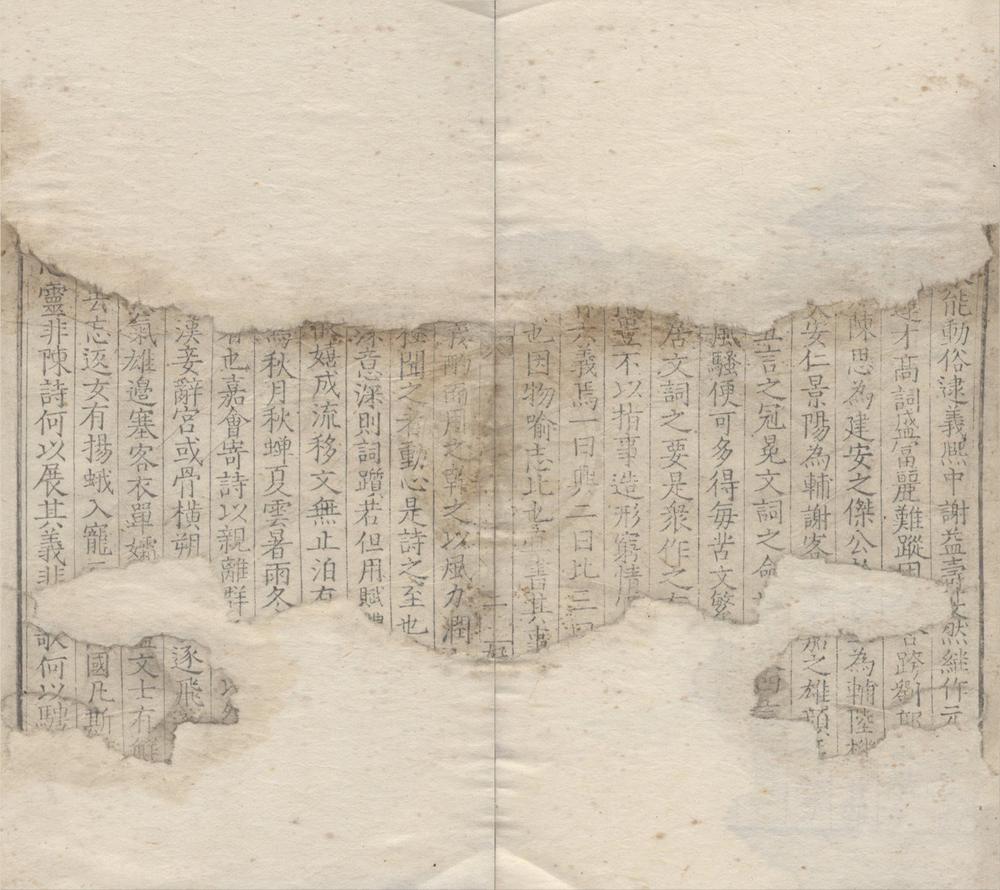 能動俗逮義熈中謝益壽文然継作元
才髙詞盛冨麗難蹤跨劉
陳思為建安之傑公為輔陸機
安仁景陽為輔謝客加之雄頿
言之冠冕文詞之命
風騷便可多得每苦文繁
居文詞之要是衆作之有
豈不以指事造形窮情
六義焉一曰興二曰比三曰
也因物喻志比也書其事
義酌而用之幹之以風力潤
極聞之者動心是詩之至也
意深則詞躓若但用賦體
嬉成流移文無止泊有
秋月秋蟬夏雲暑雨冬
者也嘉會寄詩以親離群
漢妾辭宮或骨橫朔逐飛
氣雄邊塞客衣單孀文士有解
去忘返女有揚蛾入寵國凡斯
靈非陳詩何以展其義非歌何以騁